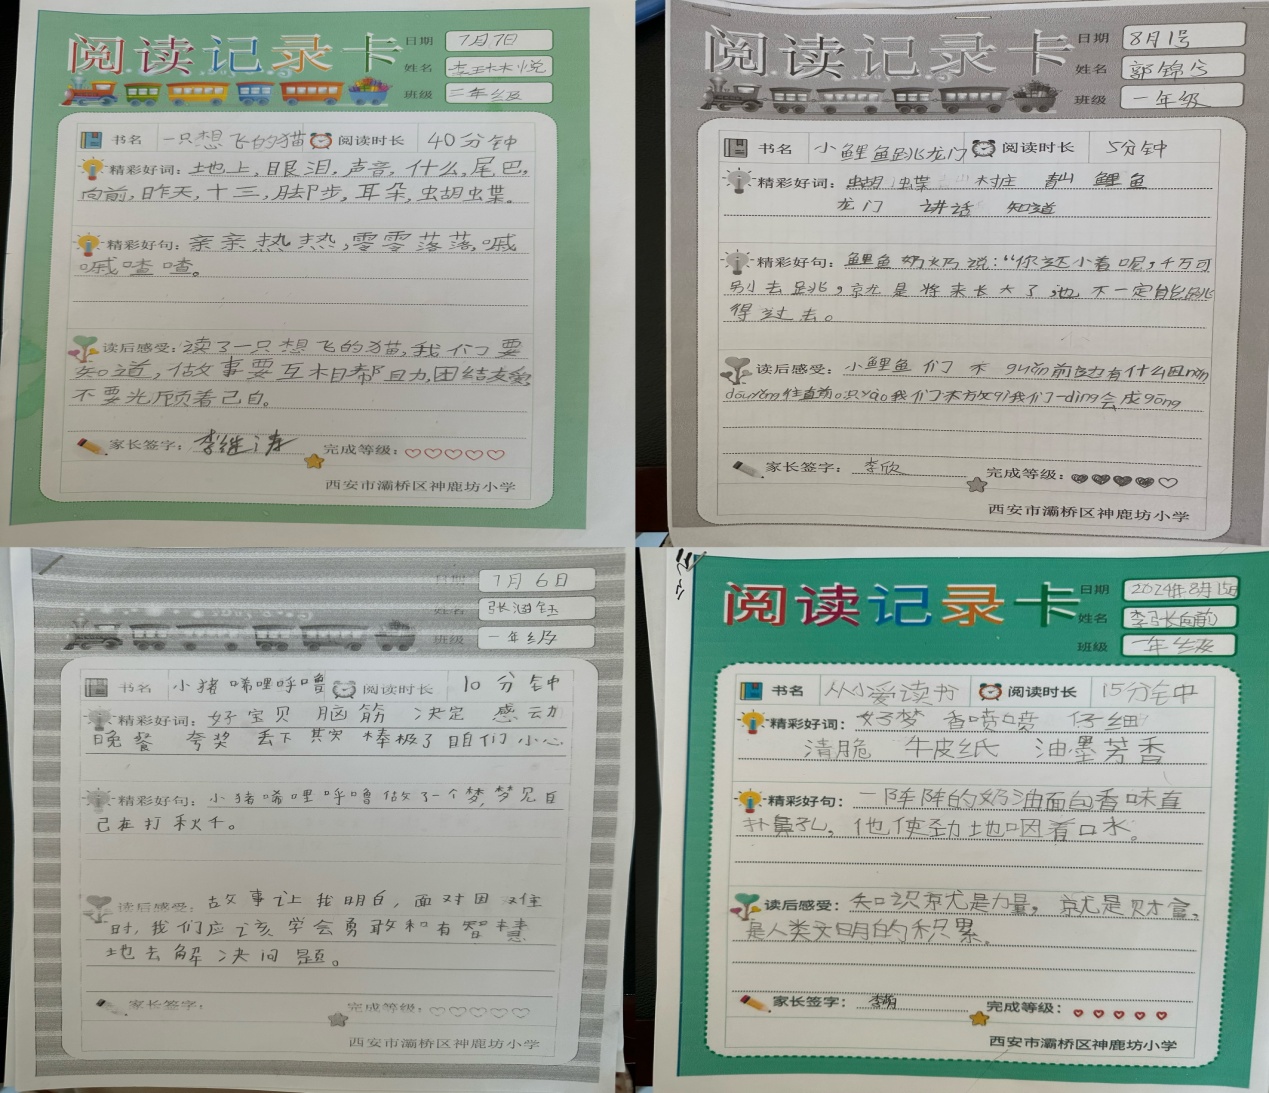 阅读记录卡
日期 7月7日
姓名
班级 二年级
书名 一只想飞的猫 阅读时长 40分钟
精彩好词: 地上,眼泪,声音,什么,尾巴,
向前,昨天,十三,脚步,耳朵,蝴蝶。
精彩好句: 亲亲热热,零零落落,嘁
嘁喳喳。
读后感受: 读了一只想飞的猫,我们要
知道,做事要互相帮助,团结友爱
不要光顾着己自。
家长签字: 李继涛 完成等级:
西安市灞桥区神鹿坊小学
阅读记录卡
日期 8月1号
姓名
班级 一年级
书名 小鲤鱼跳龙门 阅读时长 5分钟
精彩好词: 蝴蝶 村庄 鲤鱼
龙门 讲话 知道
精彩好句: 鲤鱼奶奶说:“你还小着呢,千万可
别去跳,就是将来长大了,也不一定能跳
得过去。
读后感受: 小鲤鱼们不guǎn前边有什么困nàn
dōuyǒng往直前。只yào我们不放qì我们一dìng会成gōng
家长签字: 李欣 完成等级:
西安市灞桥区神鹿坊小学
日期 7月6日
姓名 张涵钰
班级 一年级
书名 小猪唏哩呼噜 阅读时长 10分钟
精彩好词: 好宝贝 脑筋 决定 感动
晚餐 夸奖 丢下 其实 棒极了 咱们 小心
精彩好句: 小猪唏哩呼噜做了一个梦,梦见自
己在打秋千。
读后感受: 故事让我明白,面对困难
时,我们应该学会勇敢和有智慧
地去解决问题。
家长签字: 完成等级:
西安市灞桥区神鹿坊小学
阅读记录卡
日期 2024年8月15日
姓名 李张向前
班级 一年级
书名 从小爱读书 阅读时长 15分钟
精彩好词: 好梦 香喷喷 仔细
清脆 牛皮纸 油墨芳香
精彩好句: 一阵阵的奶油面包香味直
扑鼻孔,他使劲地咽着口水。
读后感受: 知识就是力量,就是财富,
是人类文明的积累。
家长签字: 完成等级:
西安市灞桥区神鹿坊小学